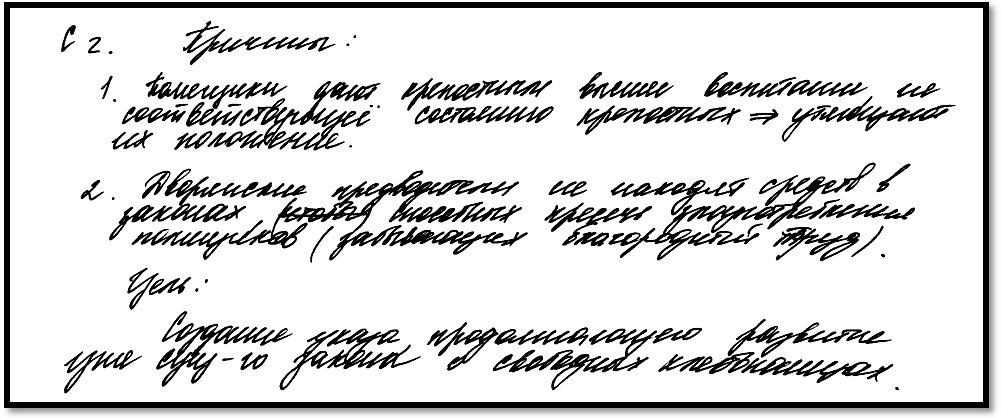 С г. Причины:
1. Помещики дают крепостным высшее воспитание не
соответствующеё состоянию крепостных ⇒ утяжщают
их положение.
2. Дворянские предводители не находят средств в
законах способных пресечь злоупотребления
помещиков (забывающих благородный труд).
Цель:
Создание указа продолжающего развитие
уже сущ-го закона о свободных хлебопашцах.